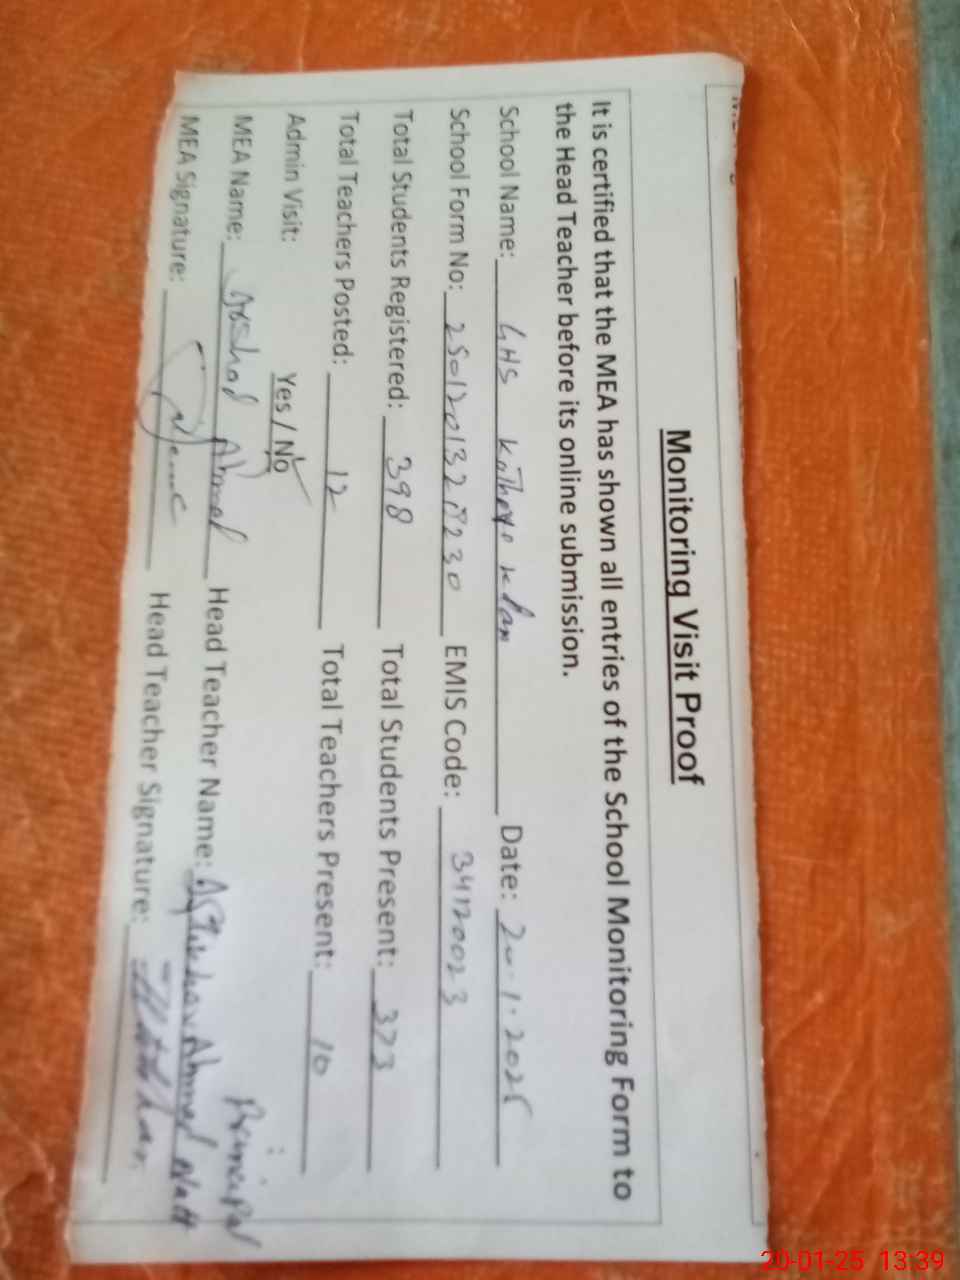 Monitoring Visit Proof
It is certified that the MEA has shown all entries of the School Monitoring Form to
the Head Teacher before its online submission.
School Name: GHS Date: 20.1.2025
School Form No: EMIS Code: 34120023
Total Students Registered: 398 Total Students Present: 373
Total Teachers Posted: 12 Total Teachers Present: 10
Admin Visit: Yes / No Principal
MEA Name: Arshad Ahmad Head Teacher Name: Ahmad
MEA Signature: Head Teacher Signature:
20-01-25 13:39